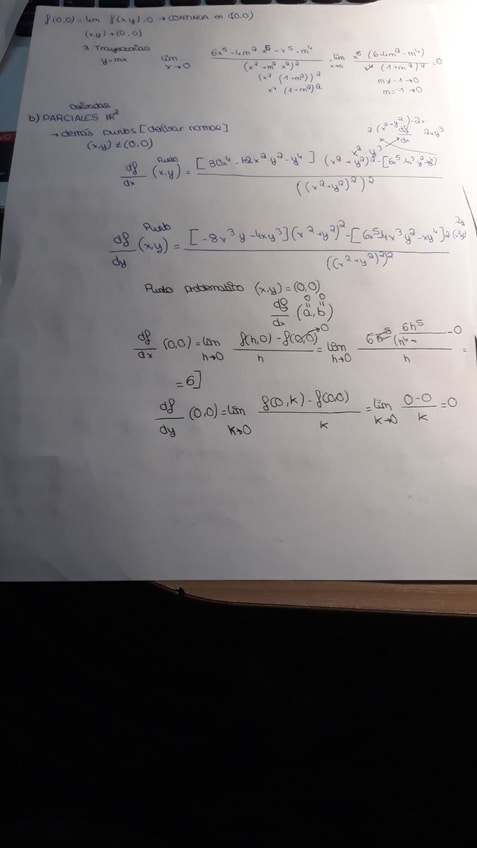 f(0,0) = lim f(x,y) = 0 → CONTINUA en (0,0)
(x,y)→(0,0)
3. Trayectorias
y=mx lim x→0 6x⁵-4m²x⁵-x⁵·m⁴ / (x²+m²x²)² = lim x→0 x⁵(6-4m²-m⁴) / x⁴(1+m²)² = 0
(x²(1+m²))²
x⁴(1+m²)²
m≠-1→0
m=-1→0
b) PARCIALES R²
→ demás puntos [derivar normal]
(x,y)≠(0,0)
2(x²+y²)·2x
df/dx (x,y) = [30x⁴-12x²y²-y⁴](x²+y²)²-[6x⁵-4x³y²-
((x²+y²)²)²
Punto
df/dy (x,y) = [-8x³y-4xy³](x²+y²)²-[6x⁵-4x³y²-xy⁴]2
((x²+y²)²)²
Punto problematico (x,y)=(0,0)
df/dx (a,b)
df/dx (0,0) = lim h→0 f(h,0)-f(0,0) / h = lim h→0 6h⁵ / h⁴ - 0 / h =
=6]
df/dy (0,0) = lim k→0 f(0,k)-f(0,0) / k = lim k→0 0-0 / k = 0